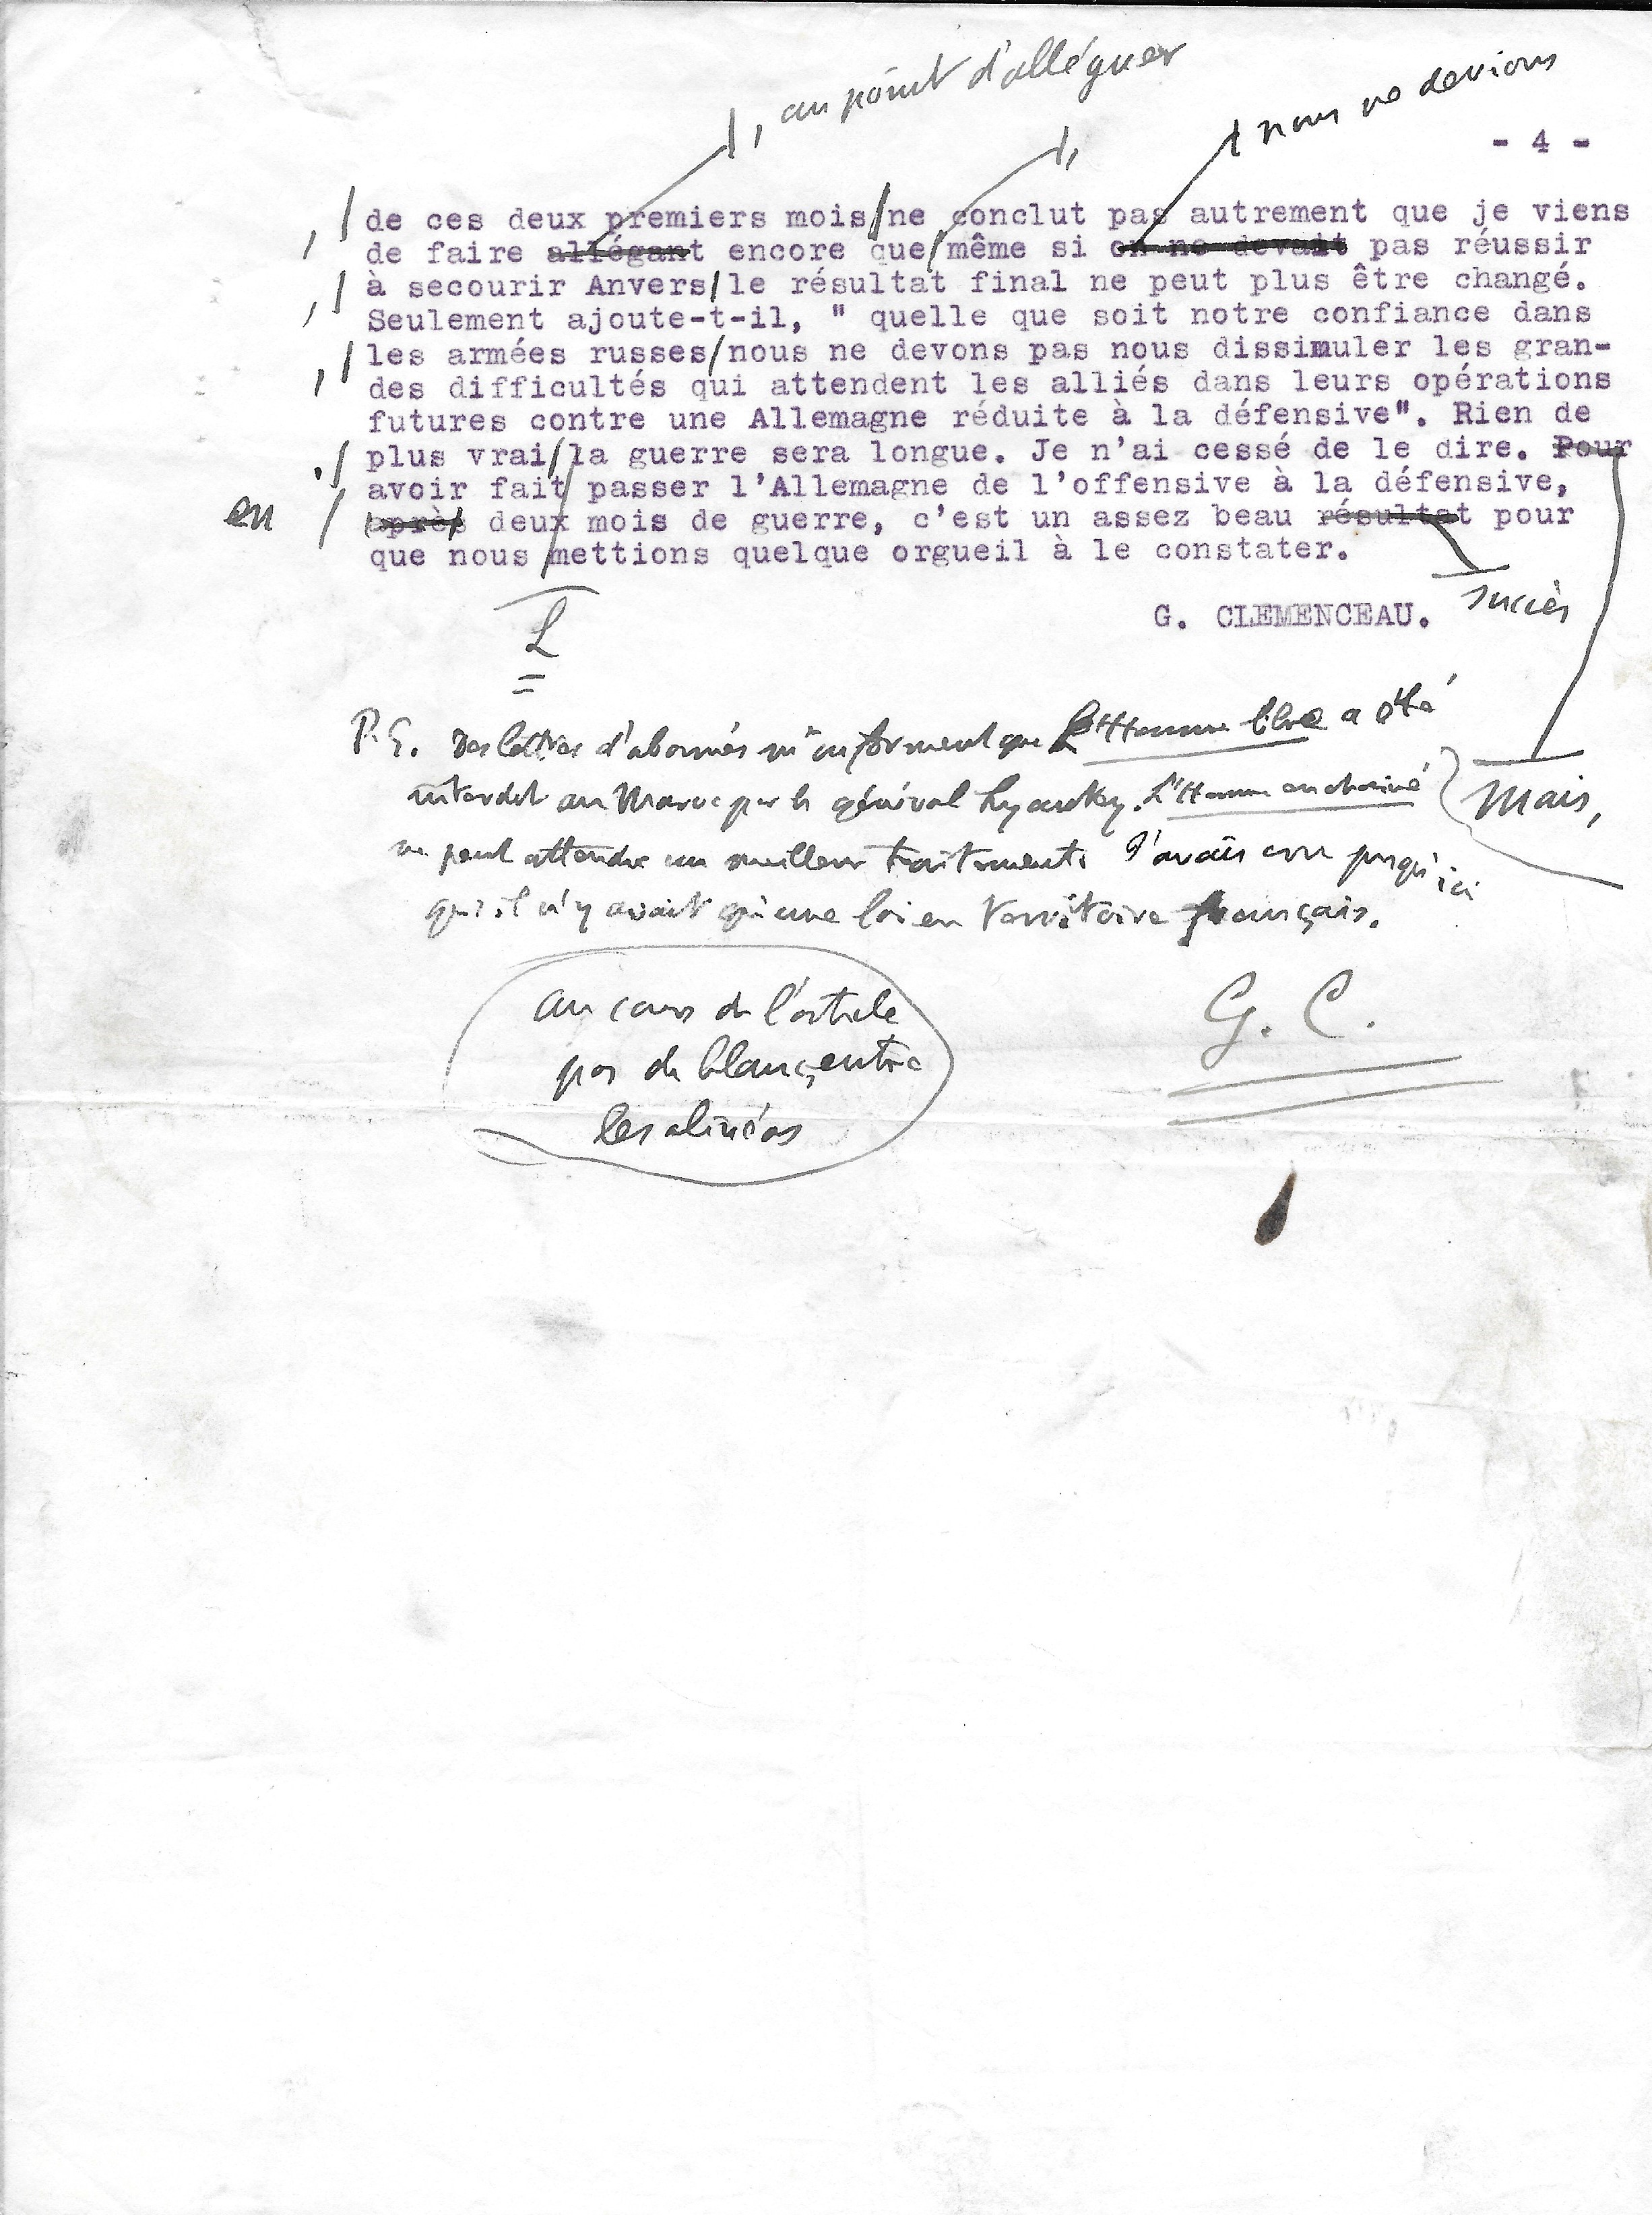 , au point d'alléguer
nous ne devions
,
- 4 -
, de ces deux premiers mois/ne conclut pas autrement que je viens
de faire allégant encore que/même si on ne devait pas réussir
, à secourir Anvers/le résultat final ne peut plus être changé.
Seulement ajoute-t-il, " quelle que soit notre confiance dans
, les armées russes/nous ne devons pas nous dissimuler les gran-
des difficultés qui attendent les alliés dans leurs opérations
futures contre une Allemagne réduite à la défensive". Rien de
. plus vrai/la guerre sera longue. Je n'ai cessé de le dire. Pour
avoir fait passer l'Allemagne de l'offensive à la défensive,
en après deux mois de guerre, c'est un assez beau résultat pour
que nous mettions quelque orgueil à le constater.
succès
L
G. CLEMENCEAU.
P.S. Des lettres d'abonnés m'informent que L'Homme libre a été
interdit au Maroc par le général Lyautey. L'Homme enchaîné
Mais,
ne peut attendre un meilleur traitement. J'avais cru jusqu'ici
qu'il n'y avait qu'une loi en territoire français.
G. C.
au cours de l'article
pas de blancs entre
les alinéas